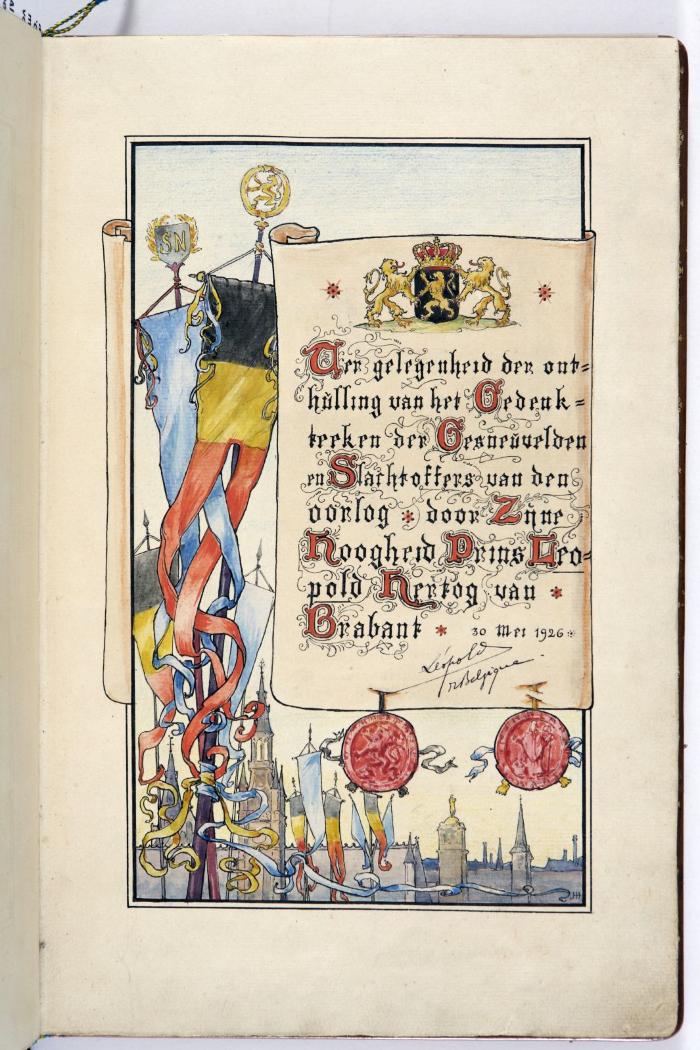 SN
Ter gelegenheid der ont=
hülling van het Gedenk=
teeken der Gesneuvelden
en Slachtoffers van den
oorlog * door Zijne
Hoogheid Prins Leo-
pold Hertog van *
Brabant * 30 Mei 1926
Léopold
de Belgique